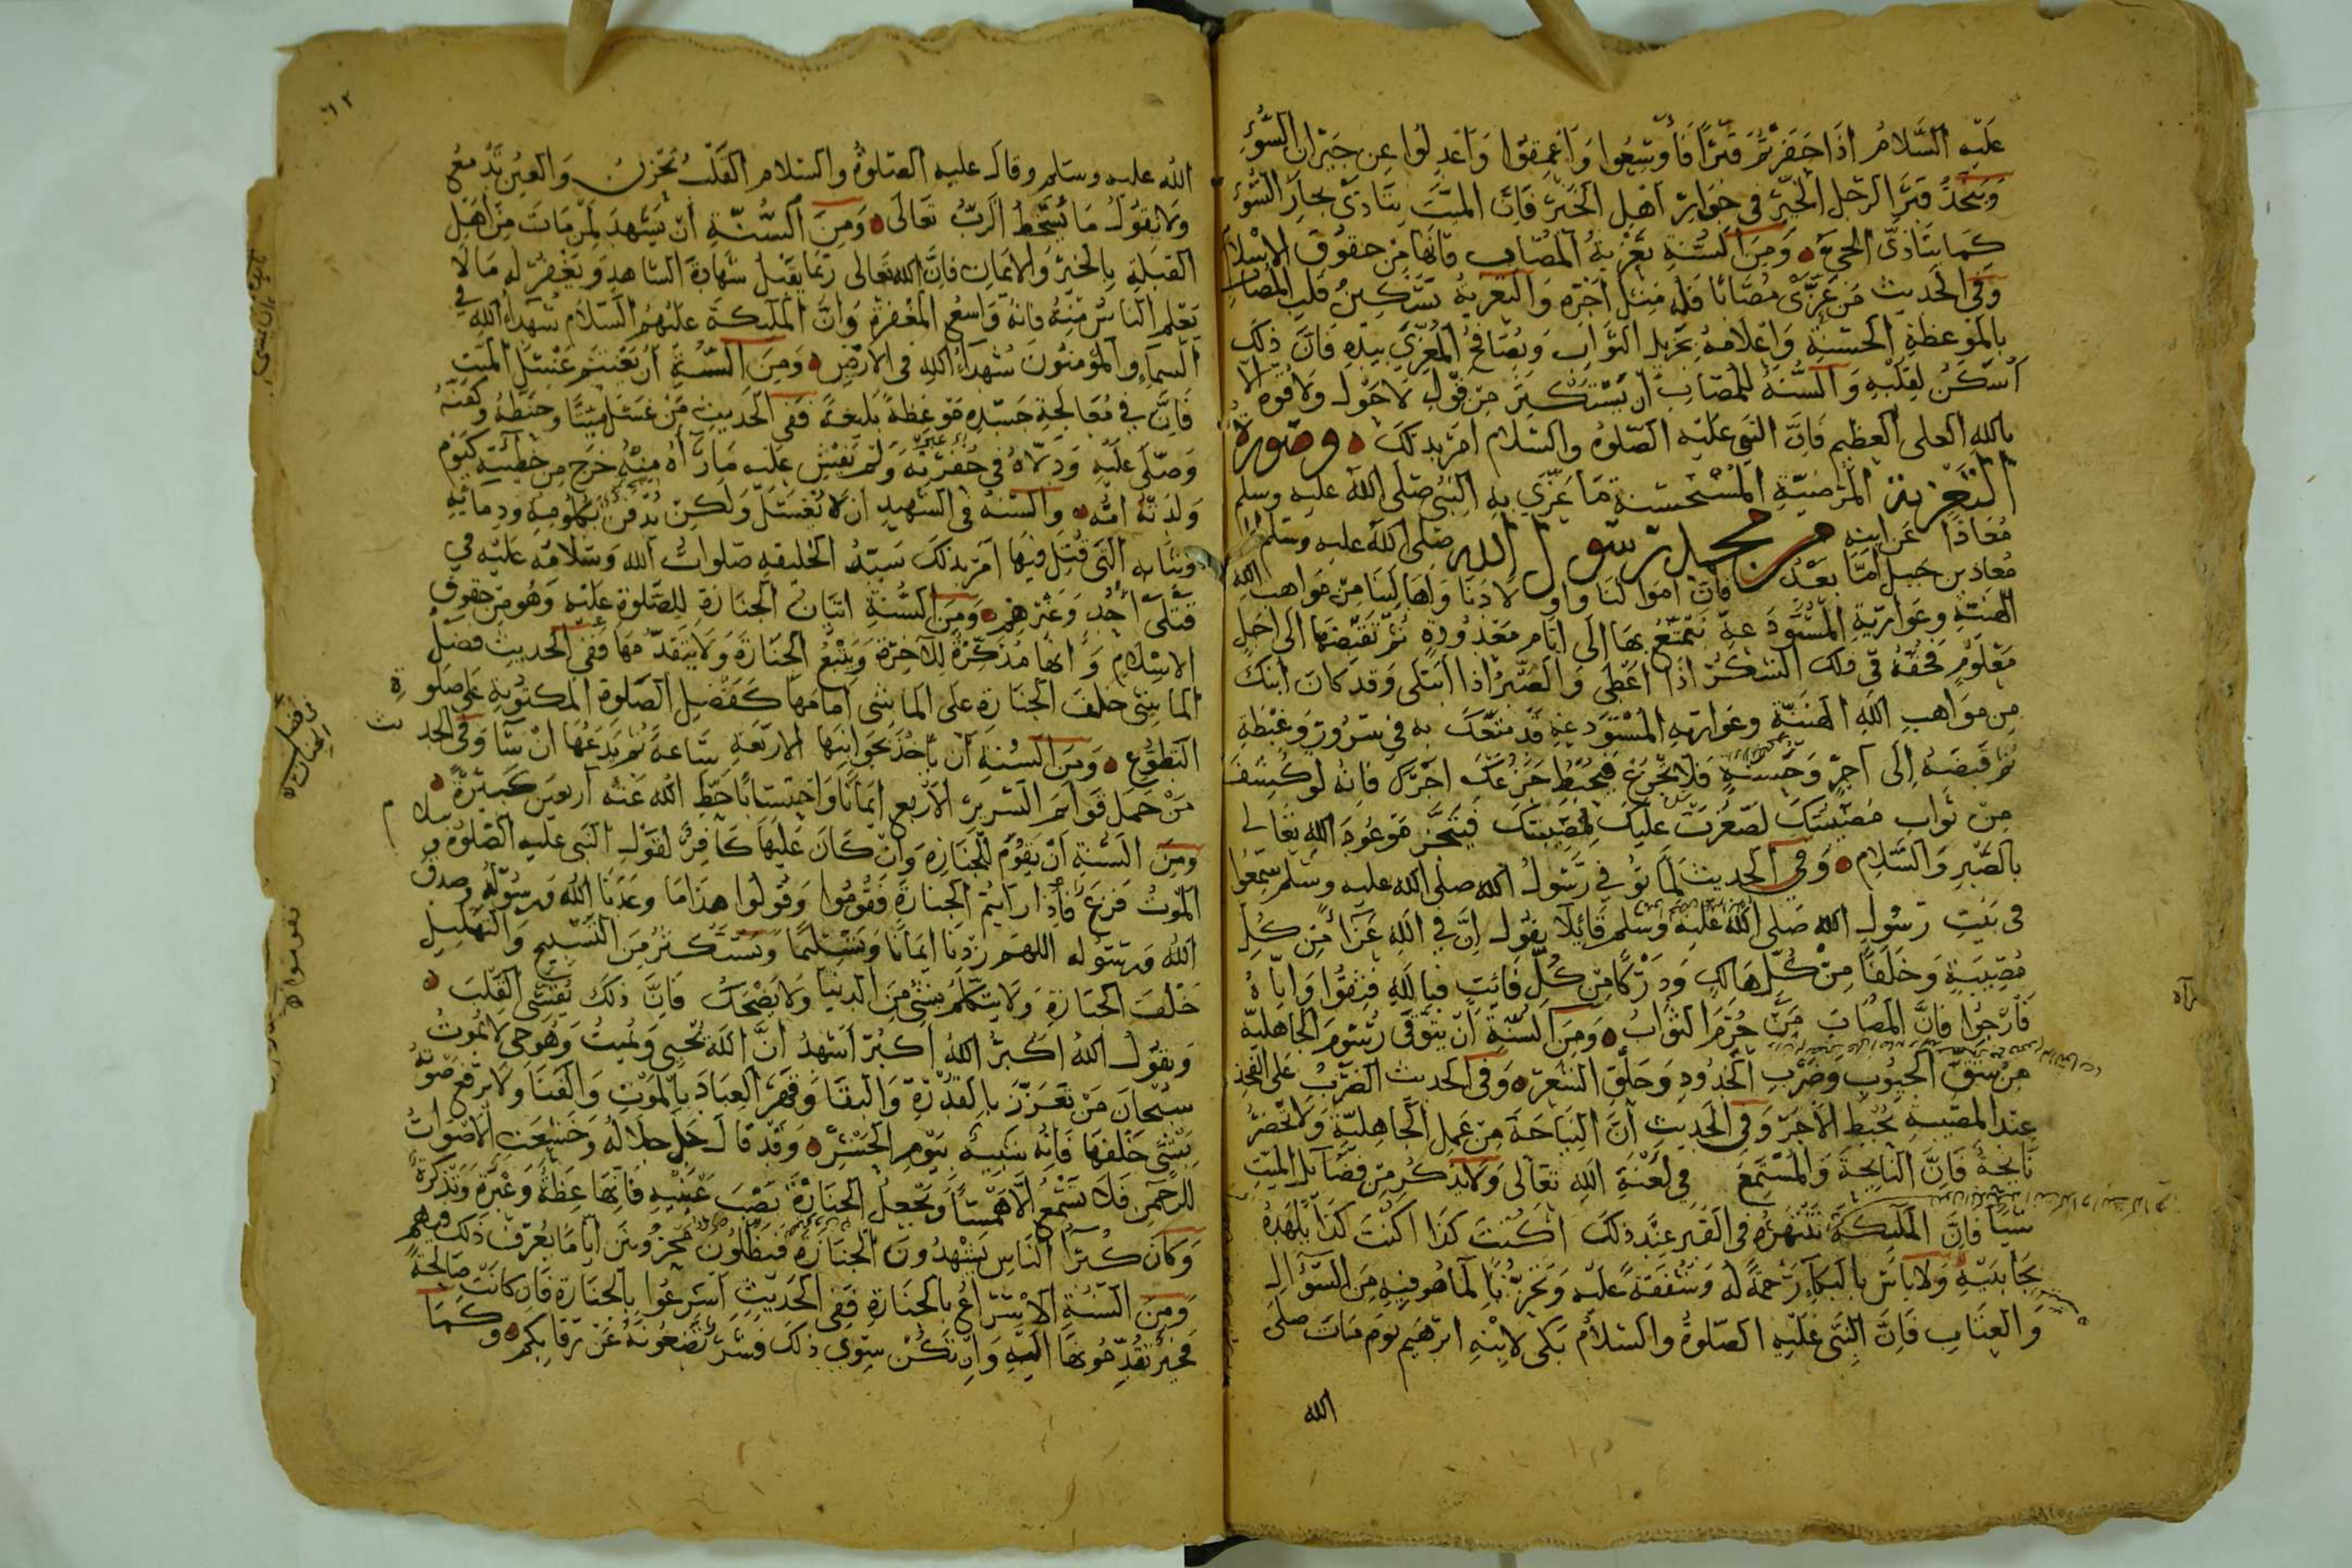 عَلَيْهِ السَّلَامُ اذَا حَفَرْتُمْ قَبْرًا فَأَوْسِعُوا وَاَعْمِقُوا وَاَعْدِلُوا عن جيران السُّوْءِ
وَيَتَّخِذُ قبر الرجل الخيّر في جِوَارِ اَهْلِ الخَيْرِ فَاِنَّ الميّتَ يتَاَذى بجار السُّوْءِ
كَمَا يتَاذى الحيّ وَمِنَ السُّنَّةِ تَعْزِيَةُ المُصَابِ فَاِنَّهَا مِنْ حقوق الاسْلام
وَفِي الحَديث مَن عَزَّى مُصَابًا فَلَه مِثْلُ اَجْرِهِ وَالتعزية تَسْكِينُ قلب المُصَاب
بالمَوْعظةِ الحَسَنَةِ وَاِعْلَامُه بجَزيل الثَّوَابِ وَيُصَافِحُ المُعَزِّي بيَدِهِ فَاِنَّ ذلك
اَسْكَنُ لِقَلْبِهِ وَالسُّنَّةُ للمُصَابِ اَن يَسْتَكْثِرَ مِن قَوْلِ لا حَوْلَ وَلا قُوَّة الا
بالله العلي العظيم فَاِنَّ النبي عَلَيْهِ الصَّلوة والسَّلام امر بذلك وصُورة
التَعْزِيَة المَرْضِيَّةِ المُسْتَحْسَنَةِ مَا عَزَّى به النَّبي صلى الله عليه وسلم
مُعَاذًا عَن ابنه من محمد رسول الله صلى الله عليه وسلم الى
مُعَاذ بن جَبَل اَمَّا بَعْد فَاِنَّ اَموَالَنَا وَاَوْلَادَنَا وَاَهَالِيْنَا مِنْ مَوَاهِب الله
الهَنِيَّةِ وعَوَارِيَّهِ المُسْتَوْدَعَةِ نَتَمَتَّعُ بهَا اِلَى اَيَّامٍ مَعْدُودَةٍ ثُمَّ نقبضها الى اَجَلٍ
مَعْلُومٍ فحقه في ذلك الشكر اذَا اَعْطَى وَالصَّبْرُ اذَا ابْتَلَى وَقَد كَانَ ابنك
مِن مَوَاهبِ اللهِ الهَنِيَّةِ وعَوَاريه المُسْتَوْدَعَةِ قَد مَتَّعَكَ به في سُرُورٍ وَغِبْطَةٍ
ثم قَبَضَهُ اِلَى اَجْرٍ وَحَسَنَةٍ فَلَا تَجْزَعْ فَيُحْبِطَ جَزَعُكَ اجْرَكَ فَاِنَّهُ لَوْ كُشِفَ
مِنْ ثَوَابِ مُصِيبَتِكَ لَصَغُرَتْ عَلَيْكَ مُصِيْبَتُكَ فَيَتَنَجَّز مَوْعُودَ الله تعالى
بالصَّبْرِ وَالسَّلام وَفي الحَديث لَمَّا تُوُفِّيَ رَسُولُ الله صلى الله عليه وَسَلَّم سَمِعُوا
فى بَيْتِ رَسُولِ الله صَلى الله عليه وسلم قَائِلًا يقُول اِنَّ فِي اللهِ عَزَاءً مِّن كُلِّ
مُصِيْبَةٍ وَخَلَفًا مِنْ كُلِّ هَالِكٍ وَدَرْكًا مِن كُلِّ فَائِتٍ فَبِاللهِ فَثِقُوا وَاِيَّاهُ
فَارْجُوا فَاِنَّ المُصَابَ مَن حُرِمَ الثَّوَابُ وَمِنَ السُّنَّةِ اَن يتوقى رُسُومَ الجاهلية
مِن شَقّ الجُيُوب وَضَرْبِ الخُدُودِ وَحَلْقِ الشعر وَفِي الحَديث الضَّرْبُ عَلى الفخذ
عِند المصيبة يُحْبِطُ الاَجرَ وَفِي الحَديث اَنَّ النِيَاحَةَ مِن عَمَلِ الجَاهِلِيَّةِ وَلَا يَحْضُرُ
نَائِحَةً فَاِنَّ النائِحَةَ وَالمُسْتَمِعَ فِي لَعْنَةِ اللهِ تَعَالَى وَلَا يَذْكُرُ مِن فَضَائِل الميّت
شَيْئًا فَاِنَّ المَلٰئِكَةَ تَنْهَرُهُ فى القَبْرِ عِندَ ذلِكَ اَكُنْتَ كَذَا اَكُنْتَ كَذَا
وَلَا بَاسَ بالبكَاءِ رَحْمَةً له وَشَفَقَةً عَلَيه وَتَحَزُّنًا لِمَا هُو فِيه مِنَ السُّؤَال
وَالعِتَاب فَاِنَّ النَّبِيَّ عَلَيْهِ الصَّلوةُ والسَّلامُ بَكى لابْنِهِ ابرٰهيم يَومَ مَاتَ صلى
الله
٦٢
الله عليه وسلم وقال عليه الصلوة والسلام القَلْبُ يَحْزَنُ وَالعَيْن تَدْمَعُ
وَلا نقول مَا يُسْخِطُ الرَبَّ تَعَالَى وَمِنَ السُّنَّةِ اَن يَشْهَدَ لِمَن مَاتَ مِن اَهْل
القِبْلَةِ بِالخَيْر وَالايمَانِ فَاِنَّ الله تَعَالى رُبَمَا يَقْبَلُ شَهَادَةَ الشَّاهِد وَيَغْفِرُ له مَا لَا
يَعْلَم الناسُ مِنْهُ فَانه وَاسِعُ المَغْفِرَةِ وَاَنَّ المَلٰئِكَةَ عَلَيْهُم السَّلَامُ شُهَدَاءُ اللهِ فى
السَّمَاءِ والمُؤمنُونَ شُهَدَاءُ اللهِ فى الاَرْضِ وَمِنَ السُّنَّةِ اَنْ يَغْتَنِم غَسْلَ المَيّت
فَاِنَّ في مُعَالَجَةِ جَسَدِهِ مَوْعِظَةً بَلِيْغَةً ففى الحَديث مَنْ غَسَلَ مَيّتًا وحَنَّطَهُ وكَفَّنَهُ
وَصَلَّى عَلَيْهِ وَدَلَّاهُ في حُفْرَتِهِ وَلَمْ يُفْشِ عَلَيه مَا رَآهُ مِنْهُ خَرَجَ مِن خَطِيْئَتِهِ كَيَوْمِ
وَلَدَتْهُ امُّه والسُّنَّة فى الشهِيدِ اَن لَا يُغْسَلَ وَلَكِنْ يُدْفَن بكُلُومِهِ ودِمَائِهِ
وَثيَابه التَي قُتِلَ فيهَا اَمَرَ بذلك سَيّدُ الخَليقه صَلَوَاتُ الله وَسَلَامُه عَلَيْه في
قَتْلَى اُحُدٍ وَغَيْرِهِم وَمِنَ السُّنَّةِ اتيَانُ الجَنَازَةِ لِلصَّلوةِ عَلَيه وَهُو مِن حقوق
الاسْلام وَاَنهَا مُذَكِّرَةٌ للآخِرَة وَيَتْبَعُ الجَنَازَةَ وَلَا يتَقَدَّمُهَا فَفى الحَديث فَضْلُ
المَاشِى خَلْفَ الجَنَازَة عَلى المَاشِى اَمَامَهَا كَفَضْلِ الصَّلوة المَكْتُوبَةِ عَلى صَلَوة
التطَوُّعِ وَمِنَ السُّنَّةِ اَن يَأْخُذَ بجَوَانِبِهَا الاَرْبَعَةِ سَاعَةً ثُمَّ يَدَعُهَا انْ شَاءَ وَفى الحديث
مَنْ حَمَلَ قَوَائمَ السَّرِير الاَرْبع اِيْمَانًا وَاحْتِسَابًا حَطَّ الله عَنْهُ اَربَعِينَ كَبِيرَةً
وَمِنَ السُّنَّةِ اَنْ يَقُومَ للجَنَازة وَاِنْ كَانَ عَلَيْهَا كَافِرٌ لِقَوْلِ النبي عَلَيه الصَّلوة و سلام
المَوْتُ فَزَعٌ فَاذَا رَأيْتُم الجَنَازَة فَقُومُوا وَقُولُوا هذَا مَا وَعَدَنَا الله وَرَسُولُه وَصَدَقَ
الله وَرَسُوله اللهمّ زِدْنَا اِيْمَانًا وَتَسْلِيمًا وَيَسْتَكْثِرُ مِنَ التَسْبِيحِ وَالتَّهْلِيل
خَلْفَ الجَنَازَةِ وَلَا يتكَلَّمُ بشَيْئٍ مِنَ الدنيَا وَلَا يَضْحَكُ فَاِنَّ ذلك يُقَسِّى القَلْبَ
وَيقُولُ اللهُ اَكْبَرُ اللهُ اَكْبَرُ اَشْهَدُ اَنَّ اللهَ يُحْيِى وَيُمِيتُ وَهُوَ حَي لَا يَمُوتُ
سُبْحَانَ مَنْ تَعَزَّزَ بِالقُدْرَةِ وَالبقَا وَقهَرَ العِبَادَ بِالمَوْتِ وَالفَنَا وَلَا يَرْفَعُ صَوْتَهُ
بشَئ خَلْفَهَا فَاِنه شَبيه بيَوْمِ الحَشْرِ وَقَدْ قَالَ جَلَّ جَلَالُهُ وَخَشَعَتِ الاَصْوَاتُ
لِلرَّحْمٰنِ فَلَا تَسْمَعُ اِلَّا هَمْسًا وَيَجْعَلُ الجَنَازَة نَصْبَ عَيْنَيْهِ فَاِنَّهَا عِظَةٌ وَعِبْرَة وَتَذْكِرَةٌ
وَكَانَ كُبَرَا النَّاسِ يَشْهَدُونَ الجَنَازَة فيَظَلُّونَ مَحْزُونينَ ايَّامًا يُعْرَفُ ذلِكَ فيهم
وَمِنَ السُّنَّةِ الاِسْرَاعُ بِالجَنَازَةِ فَفى الحَدِيث اَسْرِعُوا بِالجَنَازَة فَاِن كَانَتْ صَالِحَةً
فَخَيْرٌ تُقَدِّمُونَهَا اليه وَاِن تَكُنْ سِوى ذلِكَ فَشَرٌّ تَضَعُونَهُ عَنْ رِقَابِكُم وَكَمَا